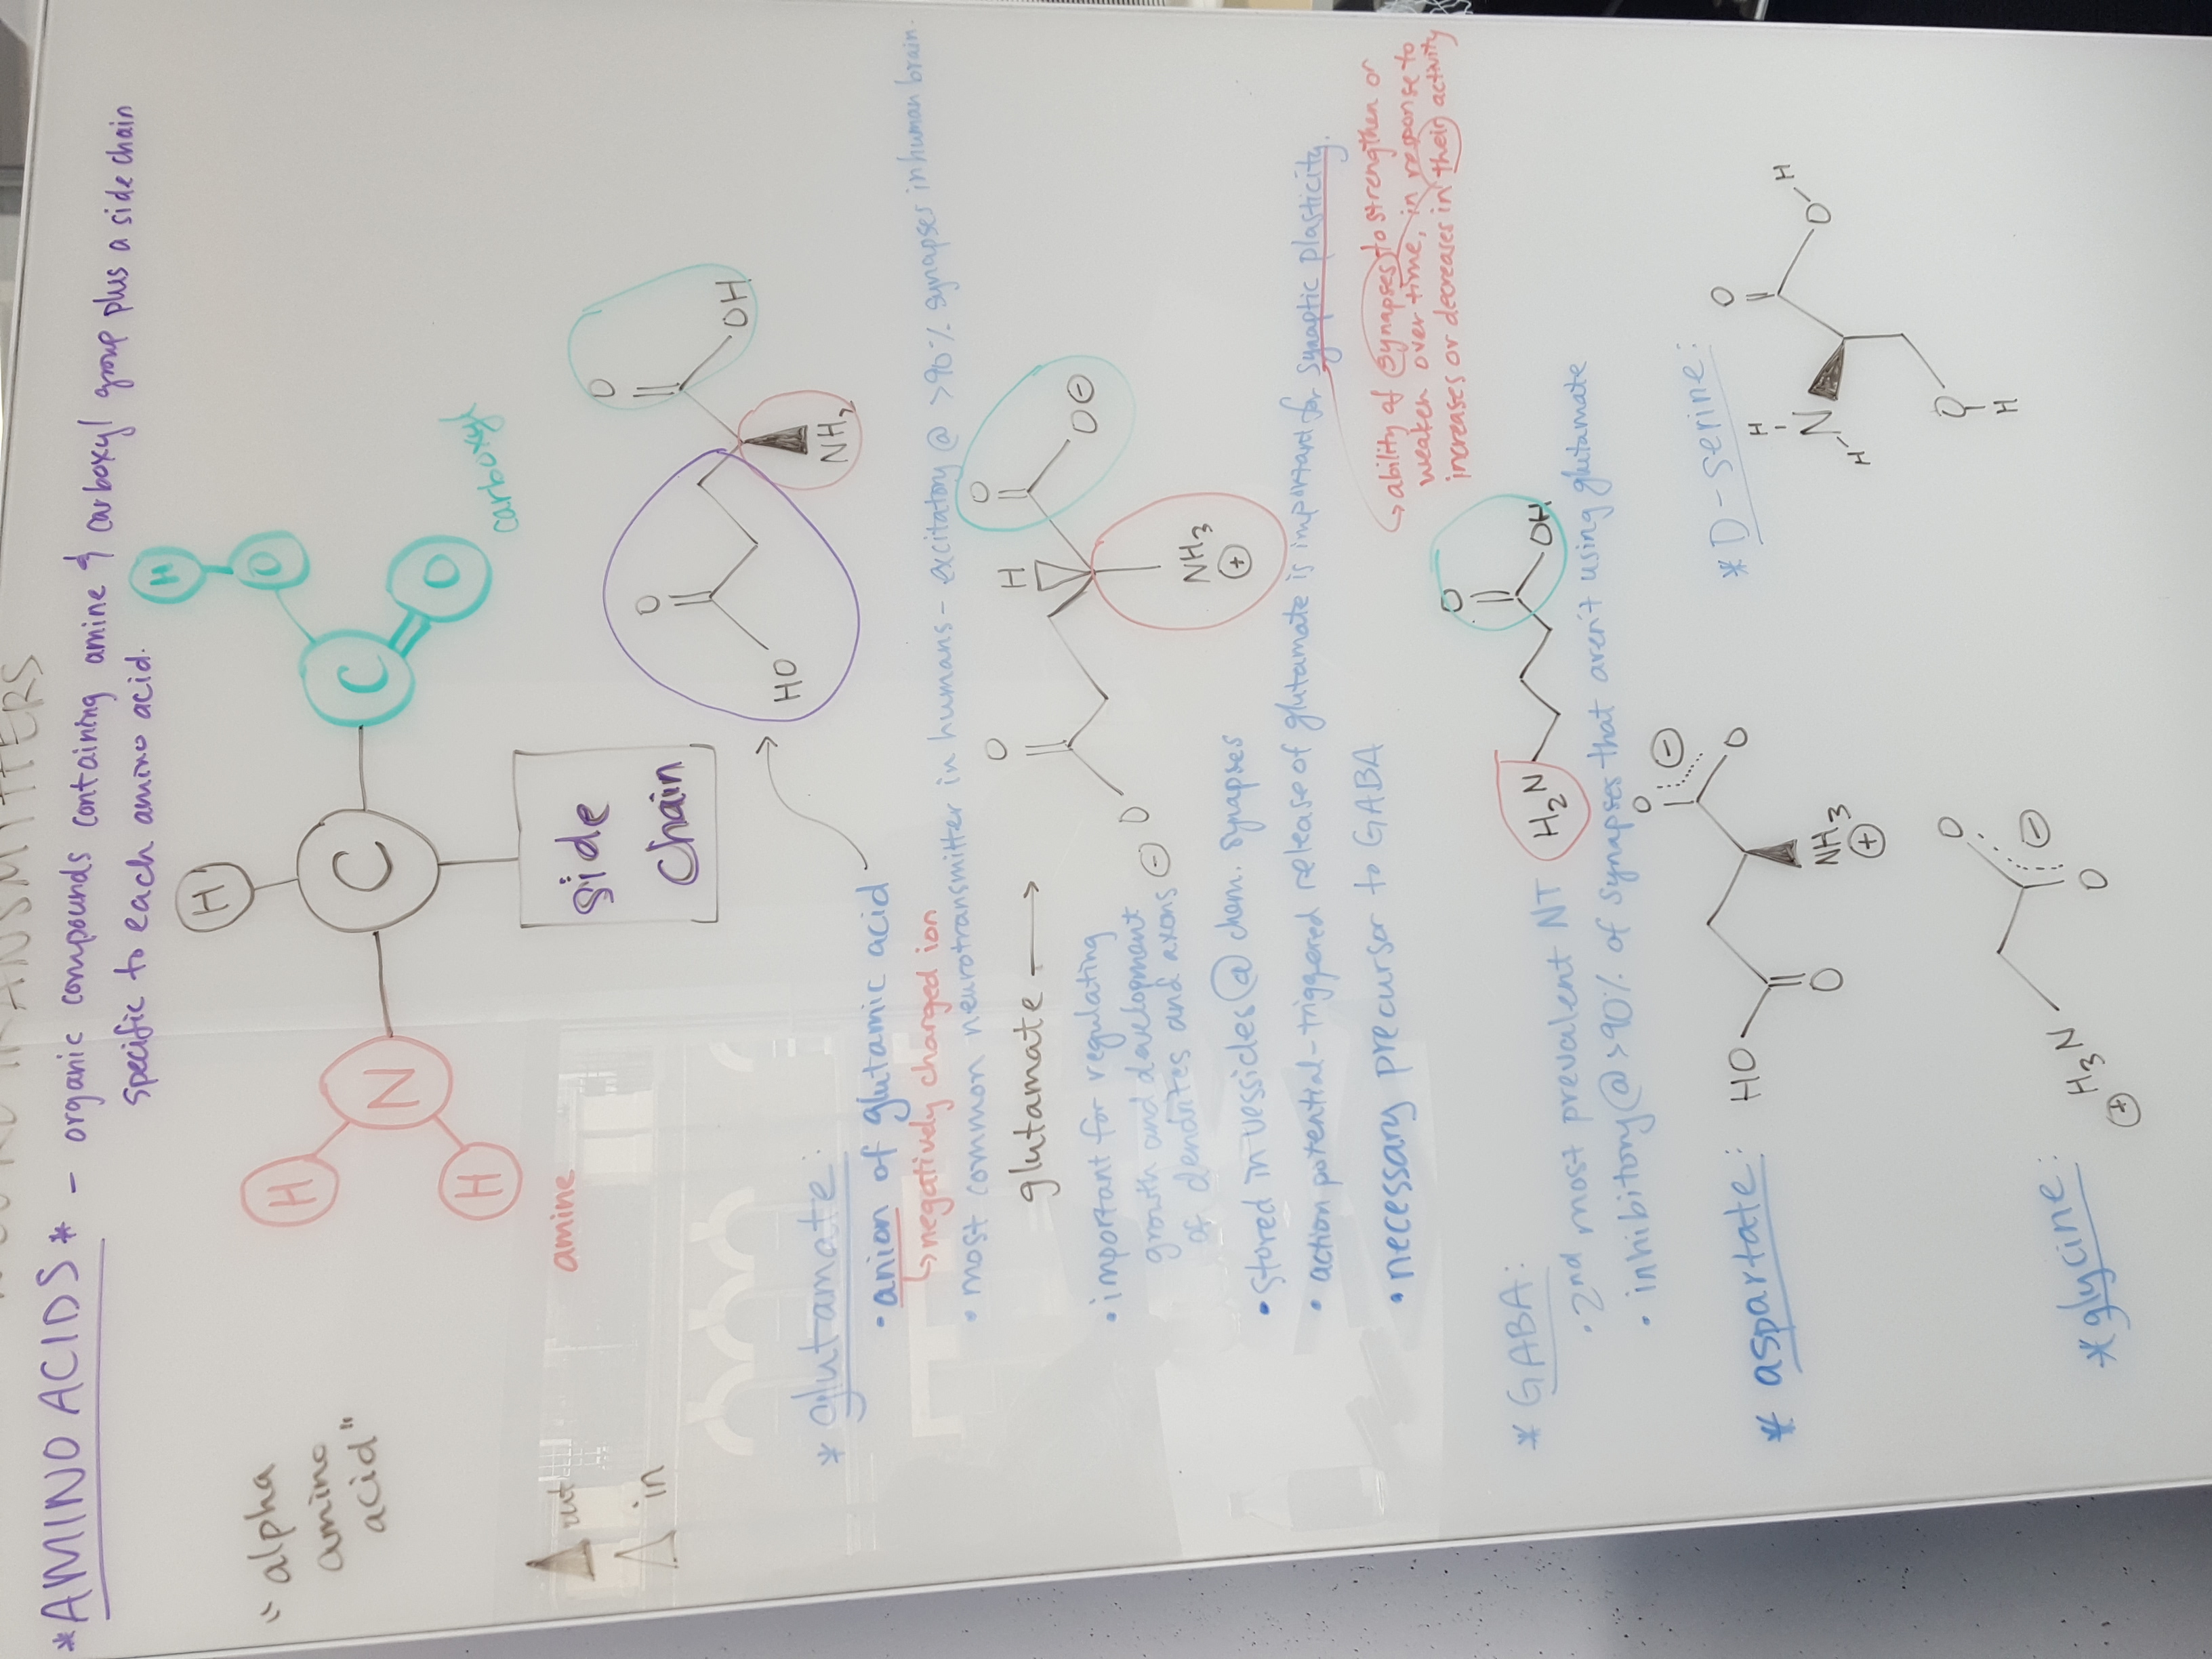 NEUROTRANSMITTERS
*AMINO ACIDS* - organic compounds containing amine & carboxyl group plus a side chain
specific to each amino acid.
"alpha
amino
acid"
H
H
N
H
C
C
O
H
O
amine
carboxyl
side
chain
out
in
O
HO
O
OH
NH2
* glutamate:
• anion of glutamic acid
↳ negatively charged ion
• most common neurotransmitter in humans - excitatory @ >90% synapses in human brain.
glutamate →
O
O
⊖
H
O
O⊖
NH3
⊕
• important for regulating
growth and development
of dendrites and axons
• stored in vessicles @ chem. synapses
• action potential-triggered release of glutamate is important for synaptic plasticity.
↳ ability of synapses to strengthen or
weaken over time, in response to
increases or decreases in their activity
• necessary precursor to GABA
* GABA:
• 2nd most prevalent NT
H2N
O
OH
• inhibitory @ >90% of synapses that aren't using glutamate
* aspartate:
HO
O
O
⊖
O
NH3
⊕
* D-serine:
H
N
H
O
O
H
O
H
* glycine:
⊕
H3N
O
⊖
O